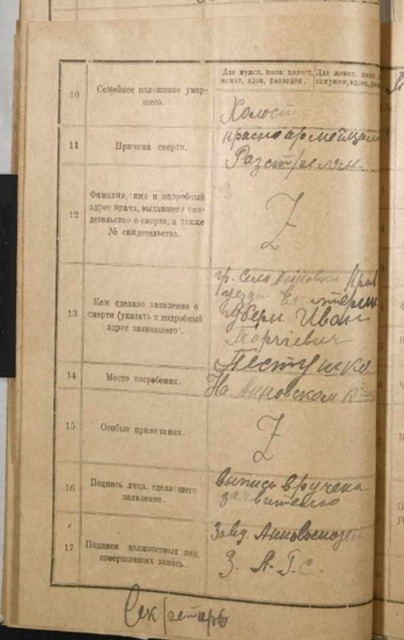 Для мужск. пола: холост,
женат, вдов, разведен.
Для женск. пола:
замужняя, вдова,
10
Семейное положение умер-
шего.
Холост
11
Причина смерти.
красноармейцами
Разстрелян.
12
Фамилия, имя и подробный
адрес врача, выдавшего сви-
детельство о смерти, а также
№ свидетельства.
Z
13
Кем сделано заявление о
смерти (указать и подробный
адрес заявившего).
Гр. села Анновки
уезда
губерн. Иван
Георгиевич
Пестушко
14
Место погребения.
На Анновском
15
Особые примечания.
Z
16
Подпись лица, сделавшего
заявление.
выпись вручена
заявителю
17
Подписи должностных лиц,
совершивших запись.
Завед.
З. А. Г. С.
Секретарь